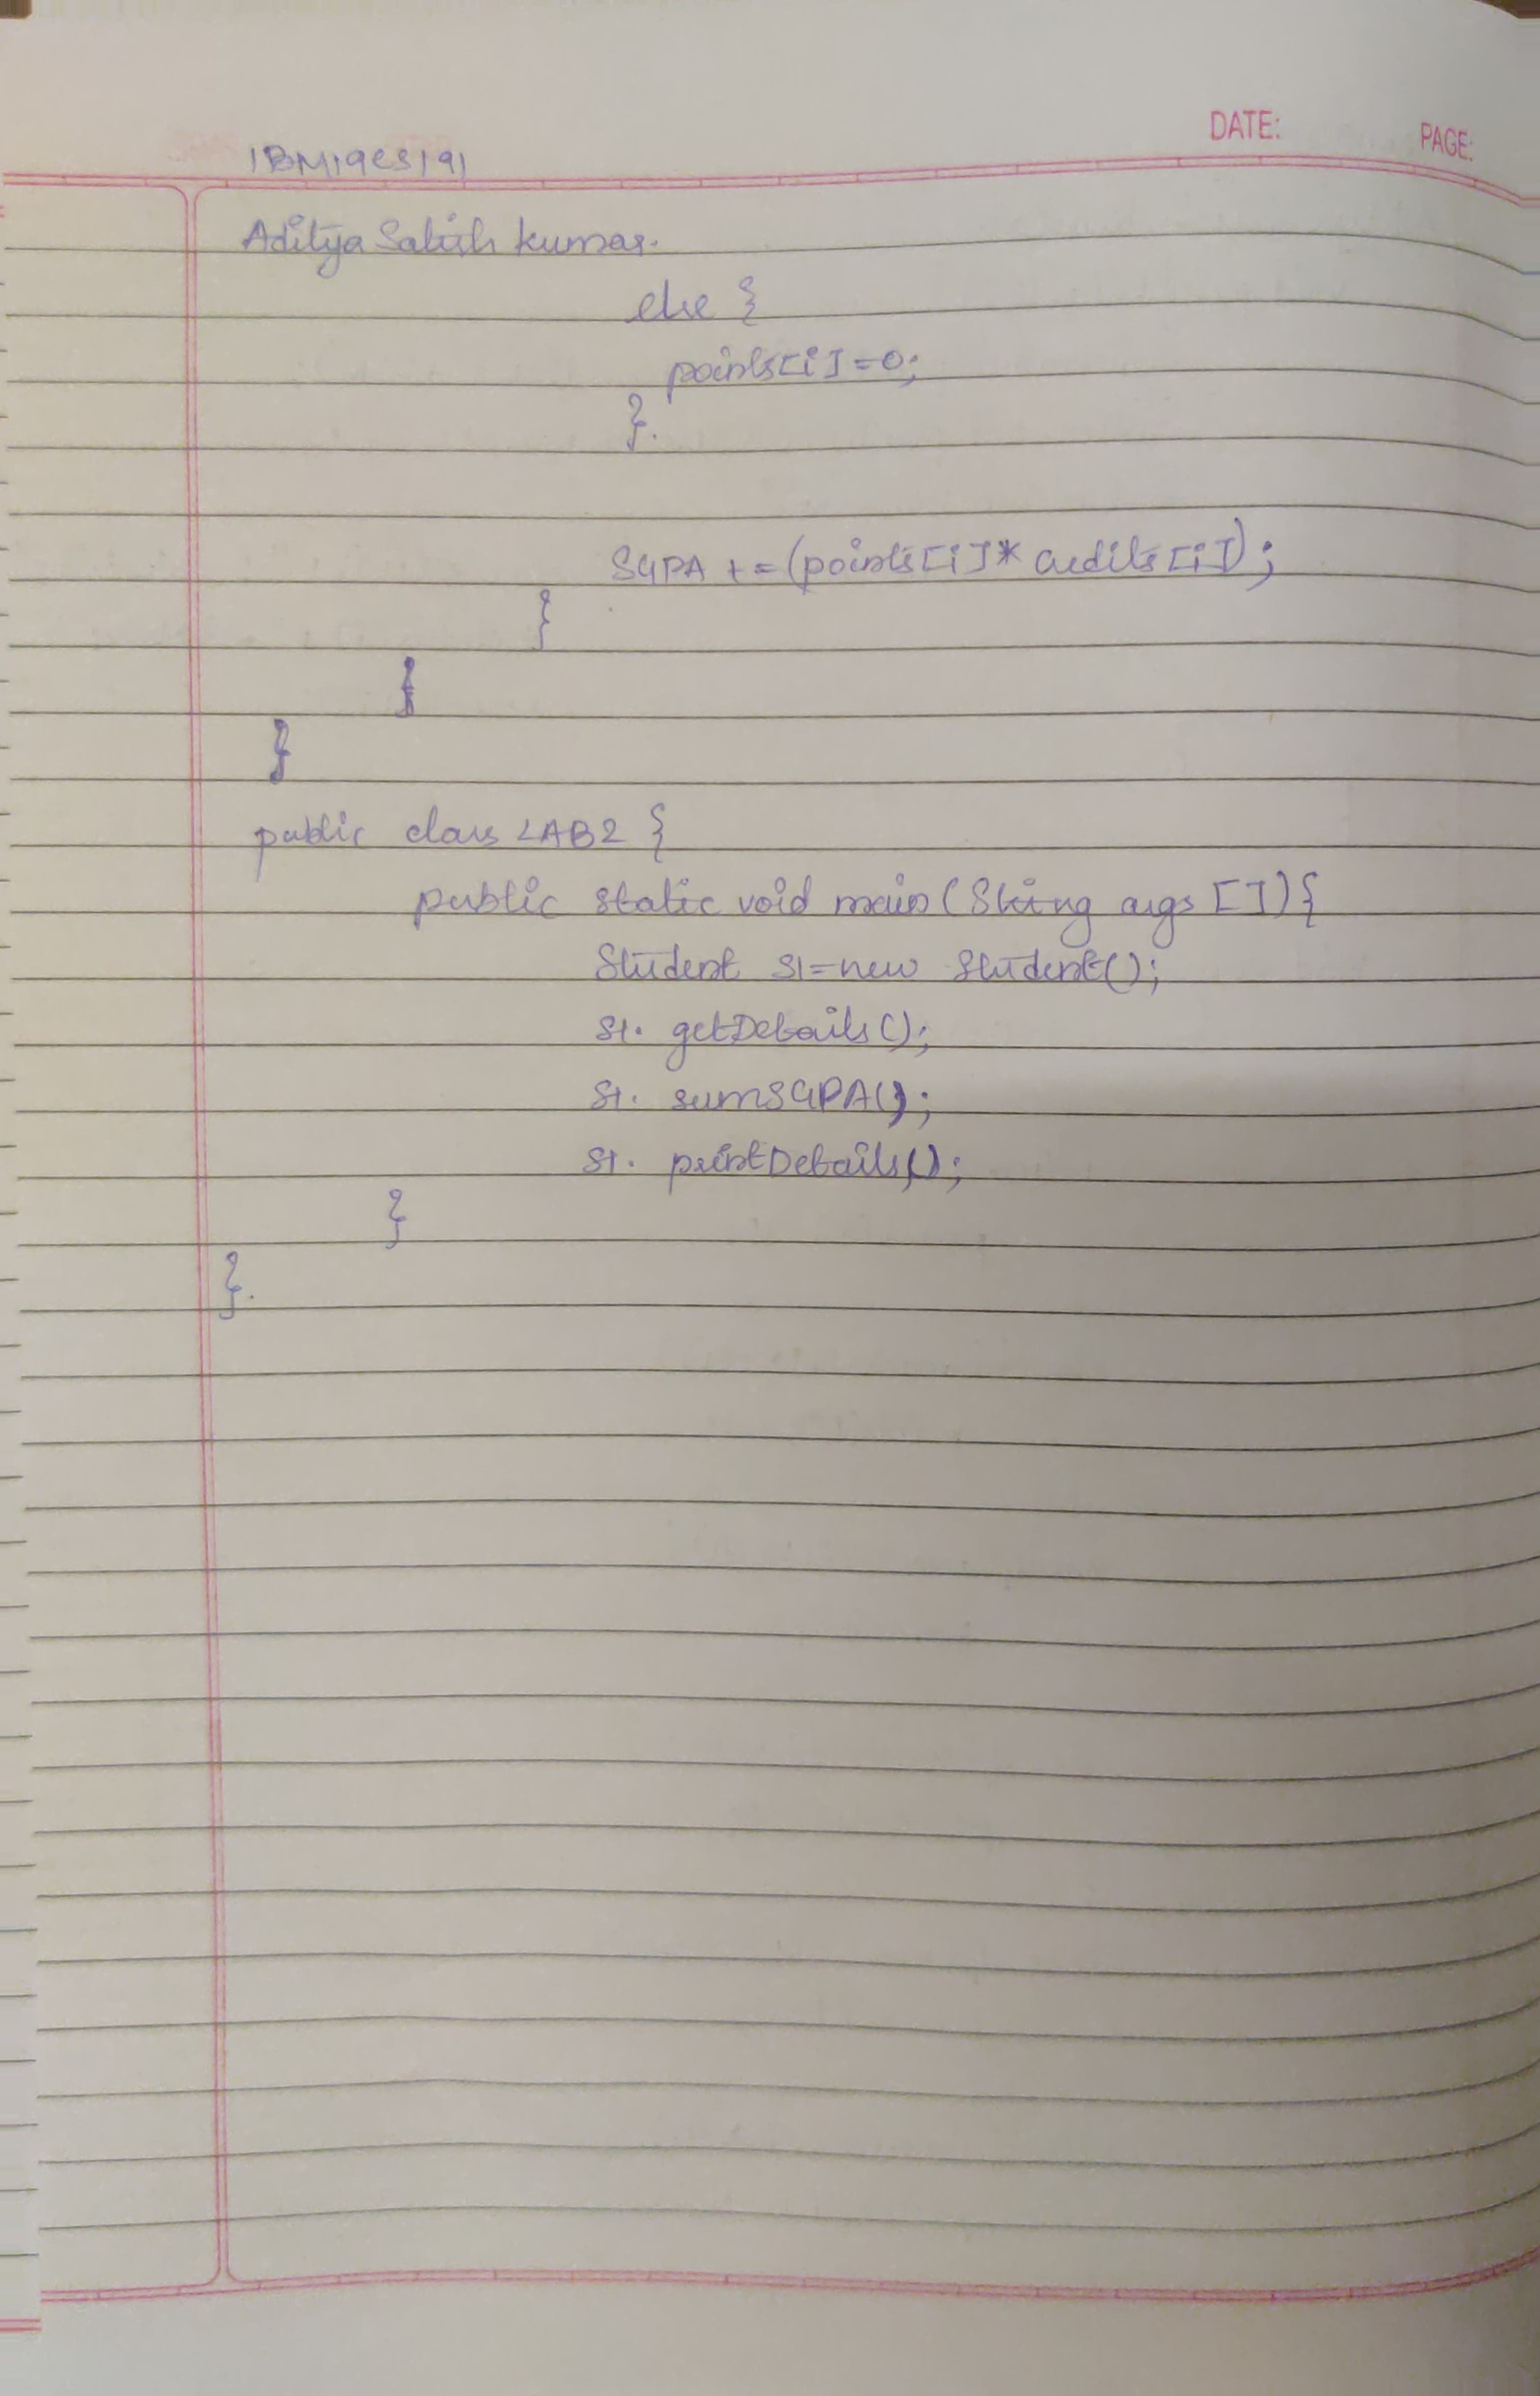 DATE: PAGE:
1BM19CS191
Aditya Satish Kumar.
else {
points[i]=0;
}.
SGPA += (points[i]* credits[i]);
}
}
}
public class LAB2 {
public static void main(String args []){
Student s1=new Student();
s1. getDetails();
s1. sumSGPA();
s1. printDetails();
}
}.